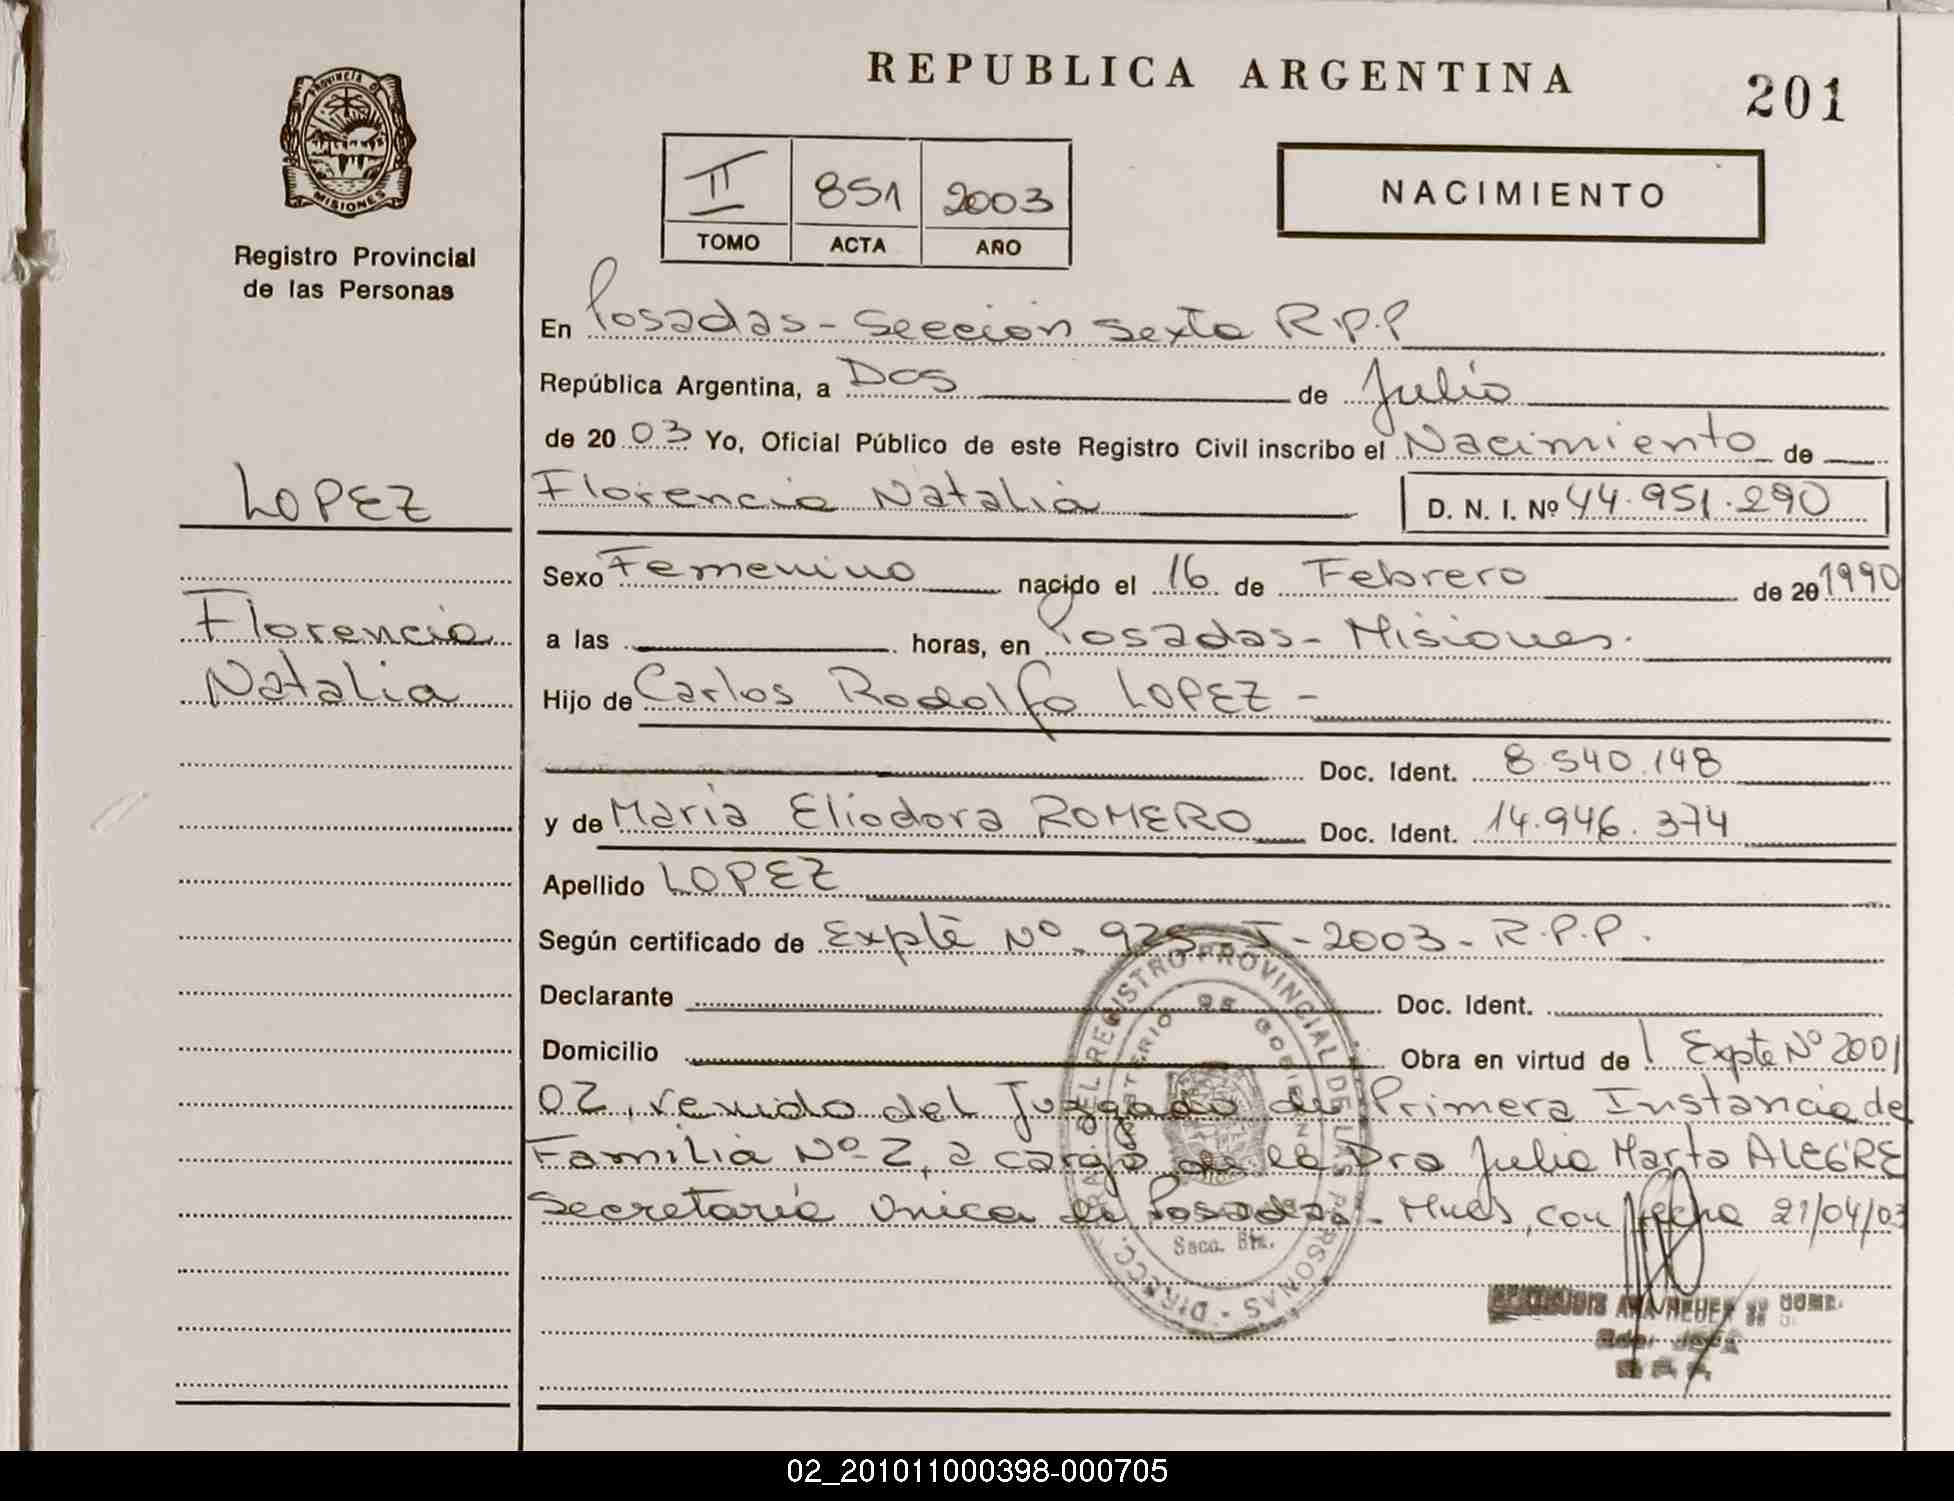 REPUBLICA ARGENTINA
201
PROVINCIA DE
MISIONES
Registro Provincial
de las Personas
II 851 2003
TOMO ACTA AÑO
NACIMIENTO
En Posadas - Sección Sexta R.P.P
República Argentina, a Dos de Julio
de 2003 Yo, Oficial Público de este Registro Civil inscribo el Nacimiento de
LOPEZ
Florencia Natalia D. N. I. Nº 44.951.290
Sexo Femenino nacido el 16 de Febrero de 20 1990
Florencia
Natalia
a las horas, en Posadas - Misiones.
Hijo de Carlos Rodolfo LOPEZ -
Doc. Ident. 8.540.148
y de Maria Eliodora ROMERO Doc. Ident. 14.946.374
Apellido LOPEZ
Según certificado de Expte Nº 925 - I - 2003 - R.P.P.
Declarante Doc. Ident.
Domicilio Obra en virtud de Expte Nº 2001
02, venido del Juzgado de Primera Instancia de
Familia Nº 2, a cargo de la Dra Julia Marta ALEGRE
Secretaria Unica de Posadas - Mnes, con fecha 21/04/03
DIRECC. GRAL. DEL REGISTRO PROVINCIAL DE LAS PERSONAS
MINISTERIO DE GOBIERNO
02_201011000398-000705